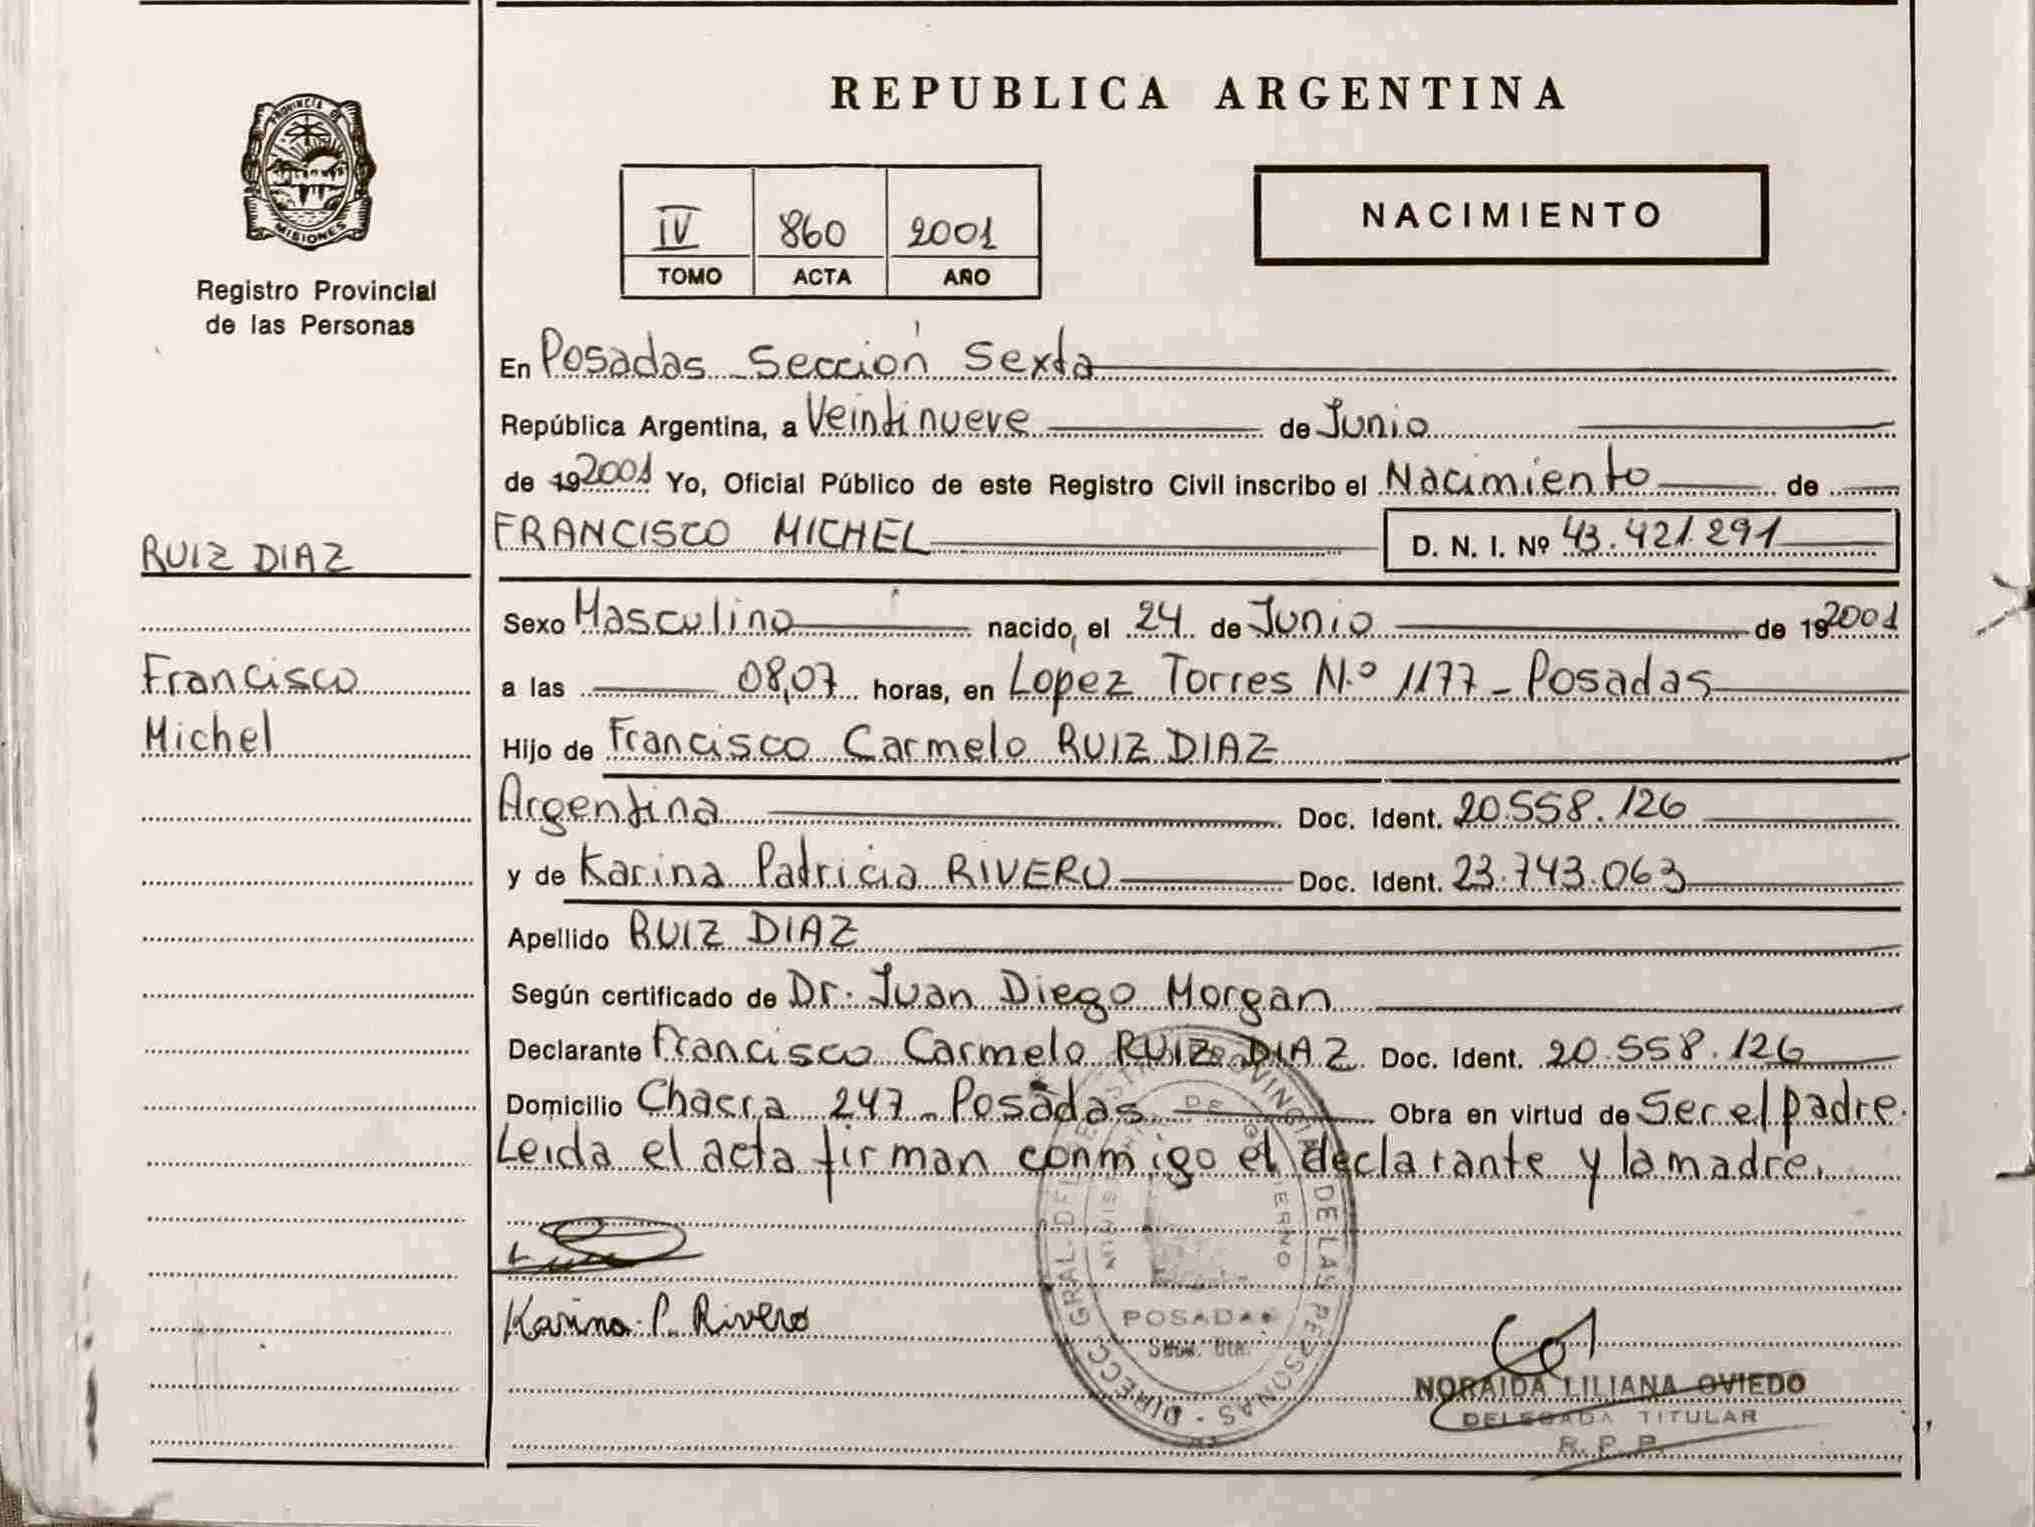 REPUBLICA ARGENTINA
PROVINCIA DE
MISIONES
Registro Provincial
de las Personas
IV 860 2001
TOMO ACTA AÑO
NACIMIENTO
En Posadas - Sección Sexta
República Argentina, a Veintinueve de Junio
de 19 2001 Yo, Oficial Público de este Registro Civil inscribo el Nacimiento de
FRANCISCO MICHEL D. N. I. Nº 43.421.291
RUIZ DIAZ
Francisco
Michel
Sexo Masculino nacido, el 24 de Junio de 19 2001
a las 08,07 horas, en Lopez Torres N.º 1177 - Posadas
Hijo de Francisco Carmelo RUIZ DIAZ
Argentina Doc. Ident. 20.558.126
y de Karina Patricia RIVERO Doc. Ident. 23.743.063
Apellido RUIZ DIAZ
Según certificado de Dr. Juan Diego Morgan
Declarante Francisco Carmelo RUIZ DIAZ Doc. Ident. 20.558.126
Domicilio Chacra 247 - Posadas Obra en virtud de Ser el padre.
Leida el acta firman conmigo el declarante y la madre.
Karina P. Rivero
DE LAS PERSONAS - DIRECC. GRAL. DEL
POSADAS
NORAIDA LILIANA OVIEDO
DELEGADA TITULAR
R. P. P.